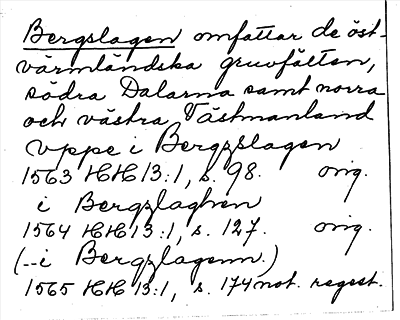 Bergslagen omfattar de öst-
värmländska gruvfälten,
södra Dalarna samt norra
och västra Västmanland
vppe i Bergzslagen
1563 HH 13:1, s. 98. orig.
i Bergzlaghen
1564 HH 13:1, s. 127. orig.
(..i Bergzlagenn.)
1565 HH 13:1, s. 174 not. regest.